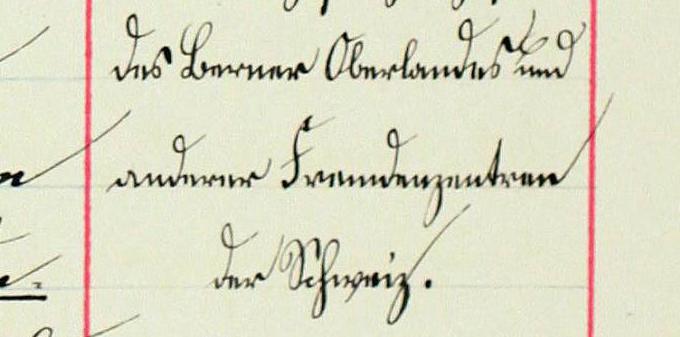 des Berner Oberlandes und
anderer Fremdenzentren
der Schweiz.